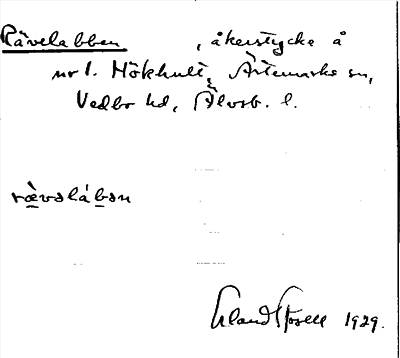 Rävelabben, åkerstycke å
nr 1. Hökhult, Ärtemarks sn,
Vedbo hd, Älvsb. l.
rævəlábən
Erland Rosell 1929.